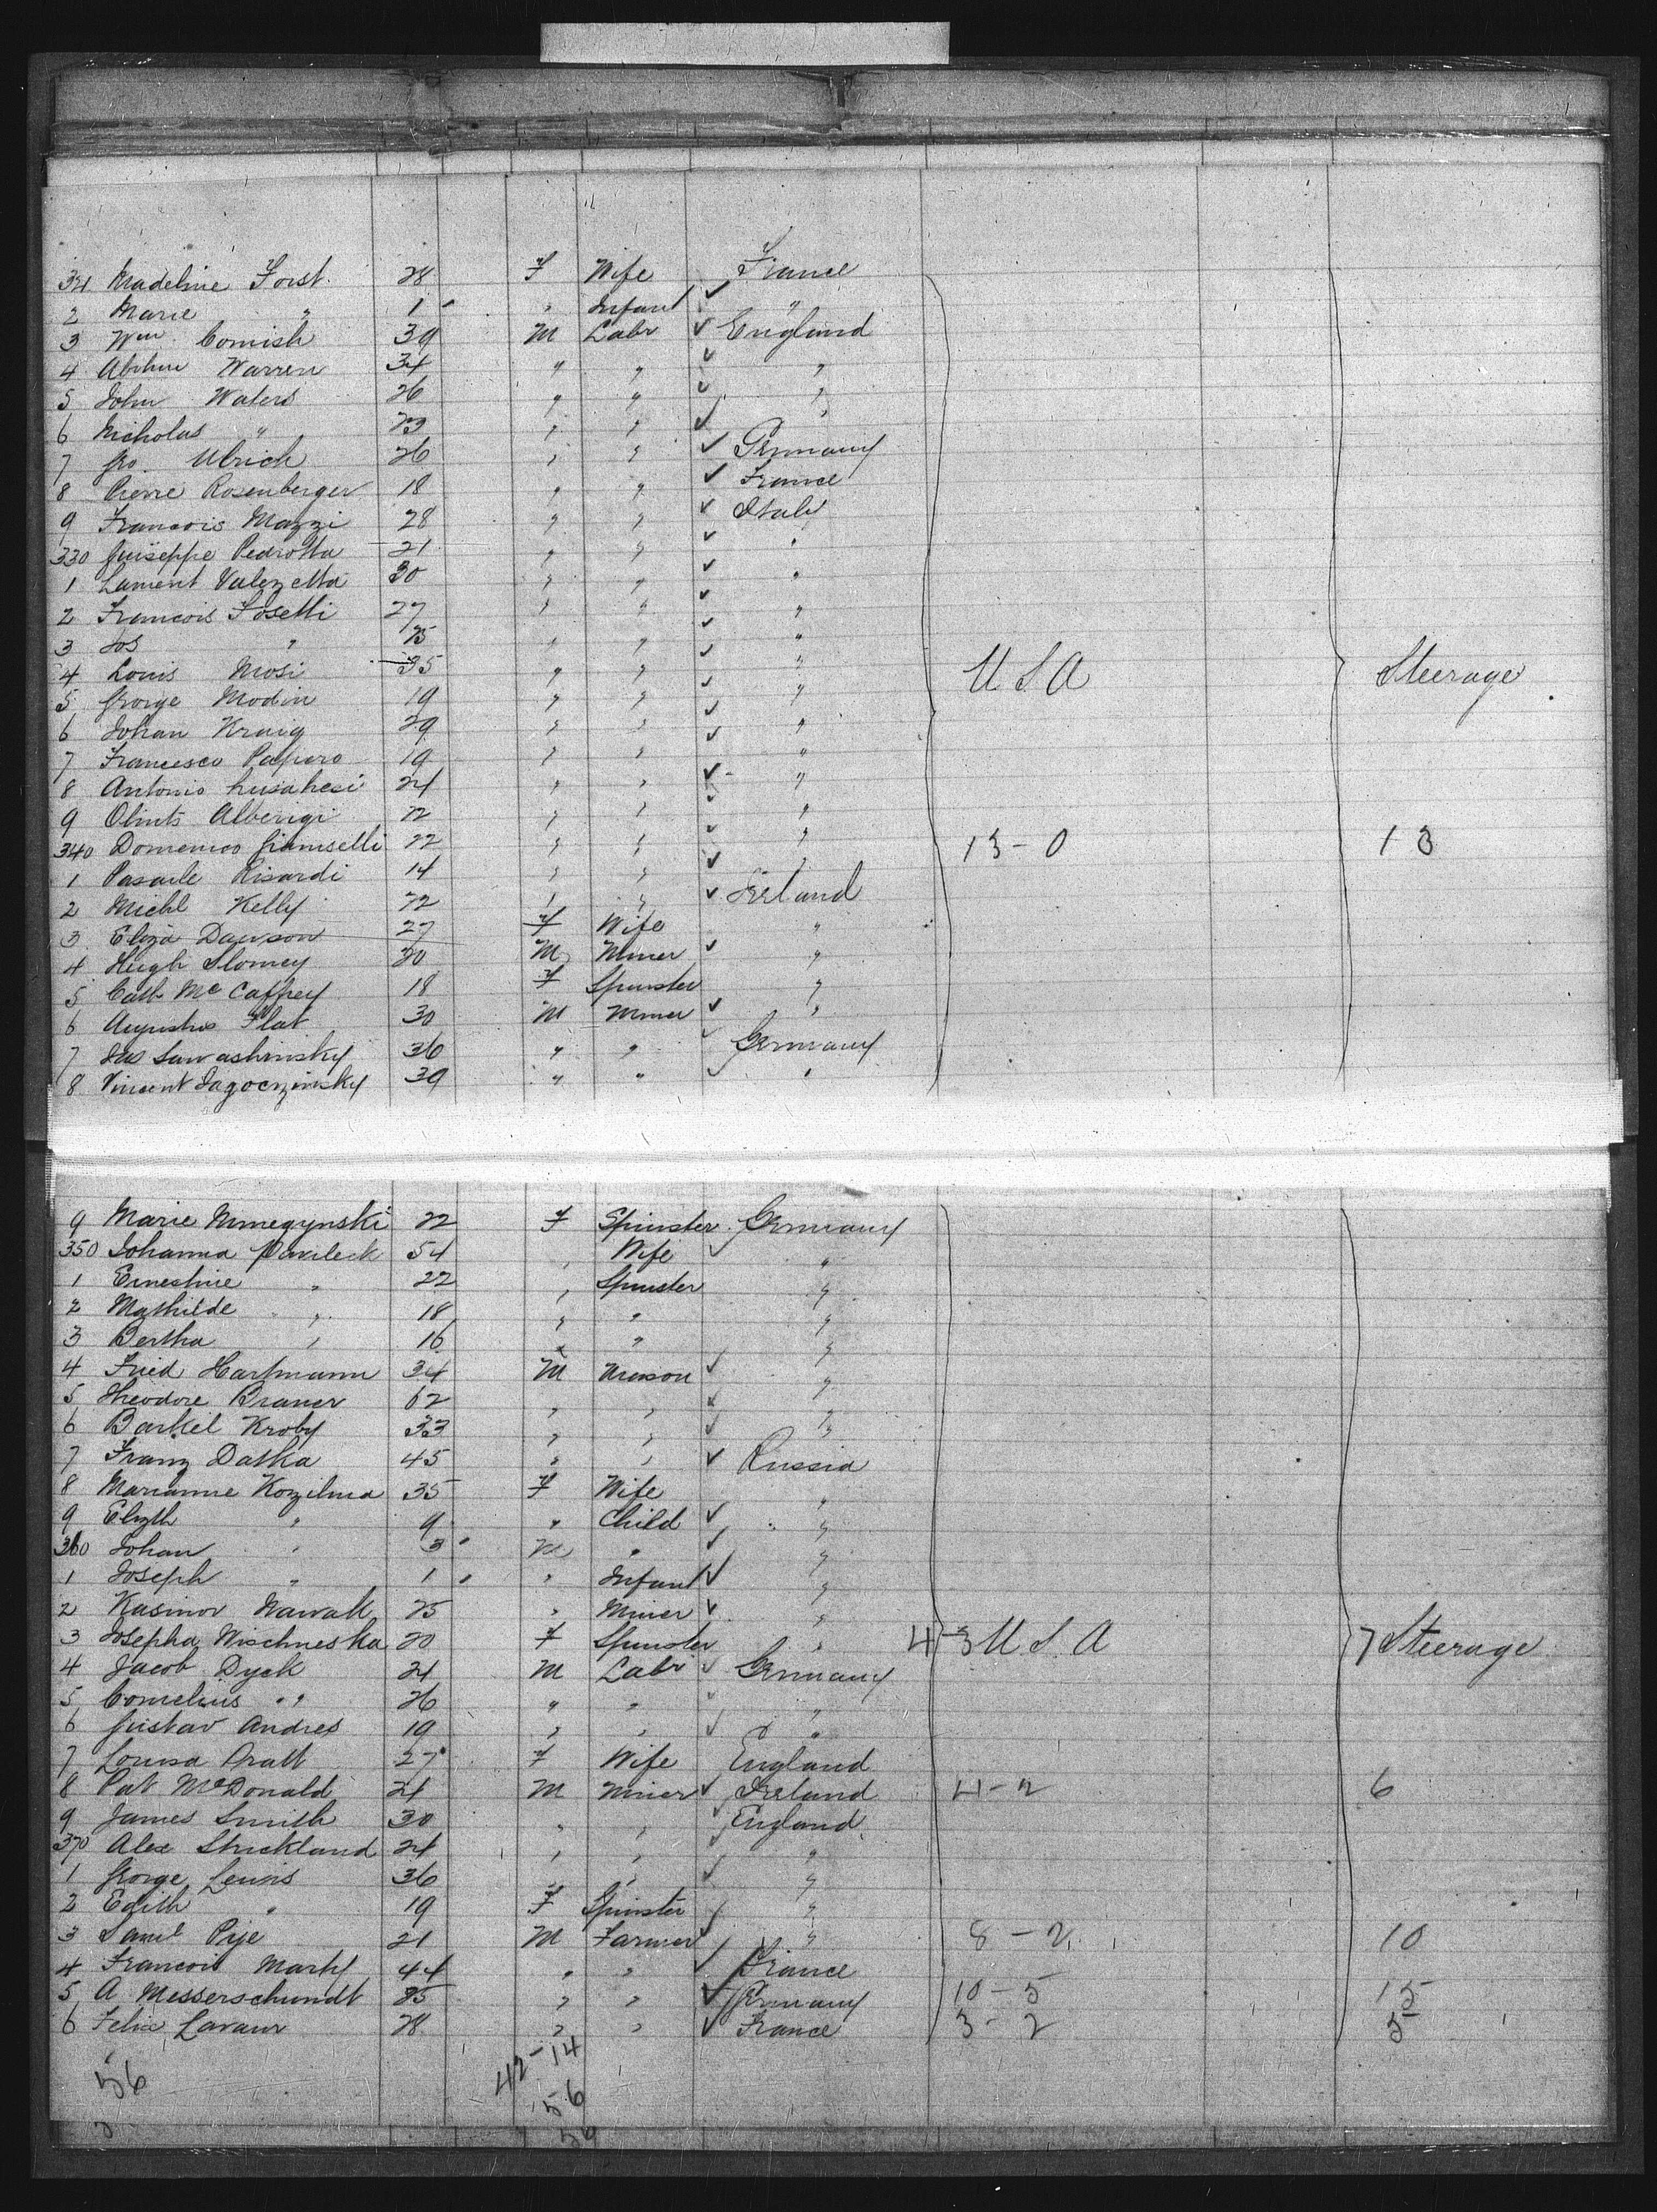 321 Madeline Forst 28 F Wife France
2 Marie " 1 " Infant "
3 Wm Cornish 39 M Labr England
4 Abrhm Warren 34 " " "
5 John Waters 26 " " "
6 Nicholas " 23 " " "
7 Geo. Ulrich 26 " " Germany
8 Pierre Rosenberger 18 " " France
9 Francois Mazzi 28 " " Italy
330 Guiseppe Pedrotta 21 " " "
1 Lament Valezetta 30 " " "
2 Francois Foselli 27 " " "
3 Jos " 25 " " "
4 Louis Mosi 35 " " " U S A Steerage
5 George Modin 19 " " "
6 Johan Kraig 29 " " "
7 Francesco Paparo 19 " " "
8 Antonio 24 " " "
9 Olints Alberigi 22 " " "
340 Domenico Gianiselli 22 " " " 13 - 0 13
1 Pasacle Risardi 14 " " "
2 Michl Kelly 22 " " Ireland
3 Eliza Dawson 27 F Wife "
4 Hugh Slomey 20 M Miner "
5 Cath McCaffrey 18 F Spinster "
6 Augustus Flat 30 M Miner "
7 Jas Sawashinsky 36 " " Germany
8 Vincent Sagoczinsky 39 " " "
9 Marie 22 F Spinster Germany
350 Johanna Pawleck 54 " Wife "
1 Ernestine " 22 " Spinster "
2 Mathilde " 18 " " "
3 Bertha " 16 " " "
4 Fried Hartmann 34 M Mason "
5 Theodore Braner 62 " " "
6 Barkel Kroby 33 " " "
7 Franz Datka 45 " " Russia
8 Marianne Kozilma 35 F Wife "
9 Elizth " 9 " Child "
360 Johan " 3 M " "
1 Joseph " 1 " Infant "
2 Kasimor Nawall 25 " Miner "
3 Josepha Wischneska 20 F Spinster " 4-3 U S A 7 Steerage
4 Jacob Dyck 21 M Labr Germany
5 Cornelius " 26 " " "
6 Gustav Andres 19 " " "
7 Louisa Pratt 27 F Wife England
8 Pat McDonald 21 M Miner Ireland 4 - 2 6
9 James Smith 30 " " England
370 Alex Strickland 24 " " "
1 George Lewis 36 " " "
2 Edith " 19 F Spinster "
3 Saml Pije 21 M Farmer " 8 - 2 10
4 Francois Marty 44 " " France
5 A Messerschmidt 25 " " Germany 10 - 5 15
6 Felix Lavaur 28 " " France 3 - 2 5
56 42 - 14
56